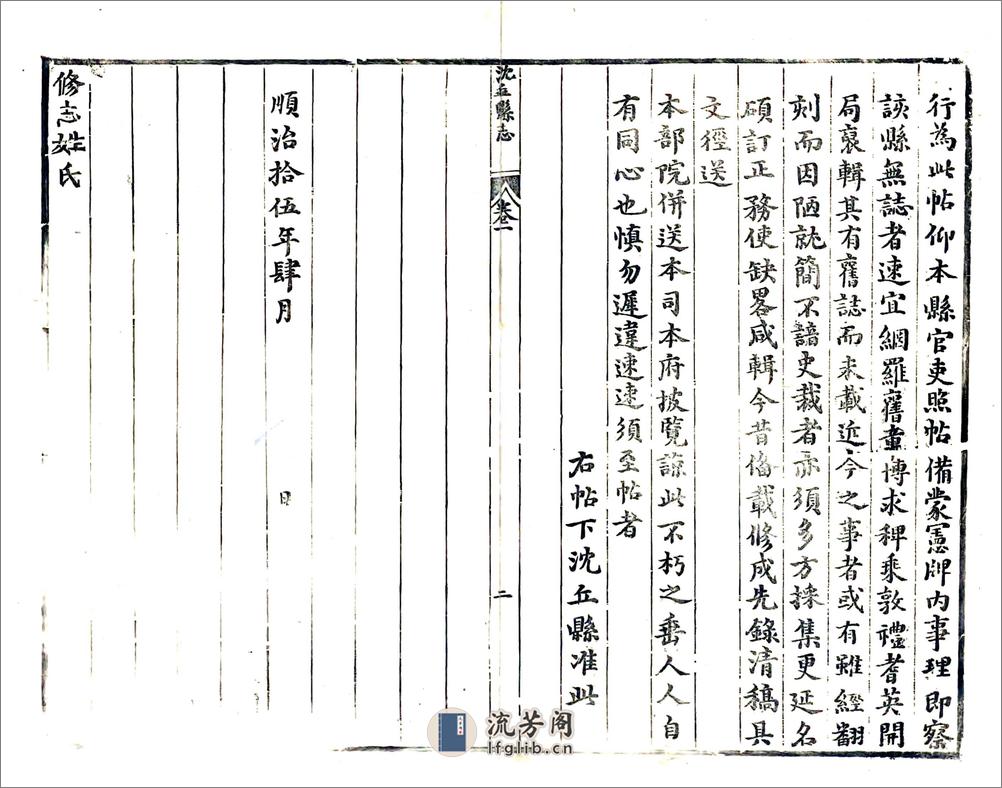 行為此帖仰本縣官吏照帖備蒙憲牌內事理即察
該縣無誌者速宜網羅舊章博求稗乘敦禮耆英開
局裒輯其有舊誌而未載近今之事者或有雖經翻
刻而因陋就簡不諳史裁者亦須多方採集更延名
碩訂正務使缺畧咸輯今昔俻載修成先錄清稿具
文徑送
本部院併送本司本府披覽諒此不朽之垂人人自
有同心也慎勿遲違速速須至帖者
右帖下沈丘縣准此
沈丘縣志
卷一
二
順治拾伍年肆月
日
修志姓氏
流芳阁
lfglib.cn